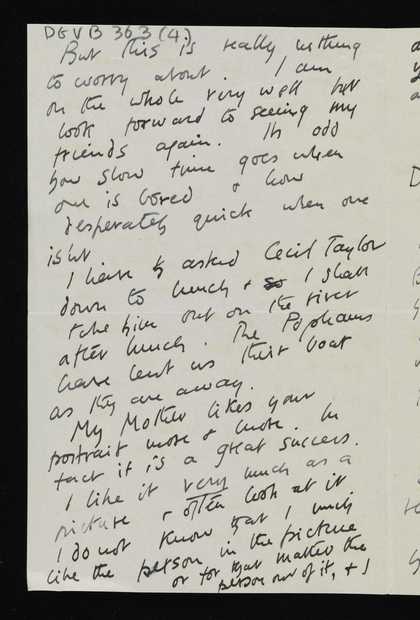 DGVB 363 (4.)
But this is really nothing
to worry about. I am
on the whole very well but
look forward to seeing my
friends again. Its odd
how slow time goes when
one is bored & how
desperately quick when one
isnt
I have asked Cecil Taylor
down to lunch & so I shall
take him out on the river
after lunch. The Pophams
have lent us their boat
as they are away.
My Mother likes your
portrait more & more. In
fact it is a great success.
I like it very much as a
picture & often look at it
I do not know that I much
like the person in the picture
or for that matter the
person out of it, & I